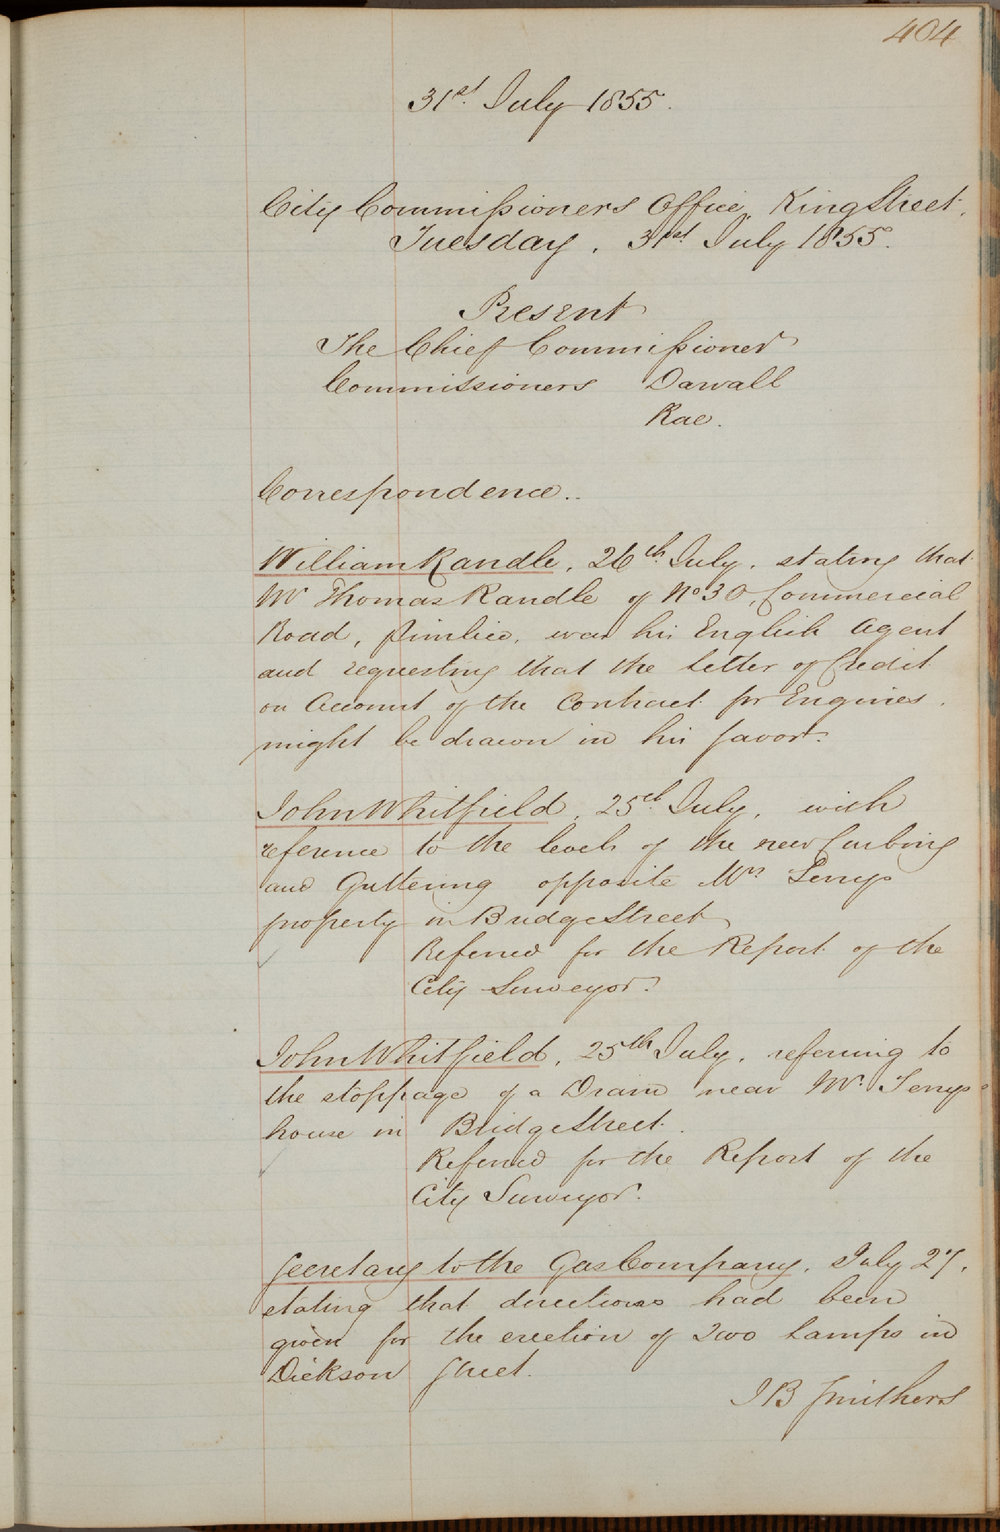 404
31st. July 1855.
City Commissioners Office, King Street,
Tuesday, 31st. July 1855.
Present
The Chief Commissioner
Commissioners Darvall
Rae.
Correspondence..
William Randle, 26th. July, stating that
Mr Thomas Randle of No 30, Commercial
Road, Pimlico, was his English Agent
and requesting that the letter of Credit
on Account of the Contract for Engines,
might be drawn in his favor.
John Whitfield, 25th. July, with
reference to the levels of the new Curbing
and Guttering opposite Mrs Terrys
property in Bridge Street
Referred for the Report of the
City Surveyor.
John Whitfield, 25th July, referring to
the stoppage of a Drain near Mr. Terrys
house in Bridge Street.
Referred for the Report of the
City Surveyor.
Secretary to the Gas Company, July 27,
stating that directions had been
given for the erection of two Lamps in
Dickson Street.
J B Smithers